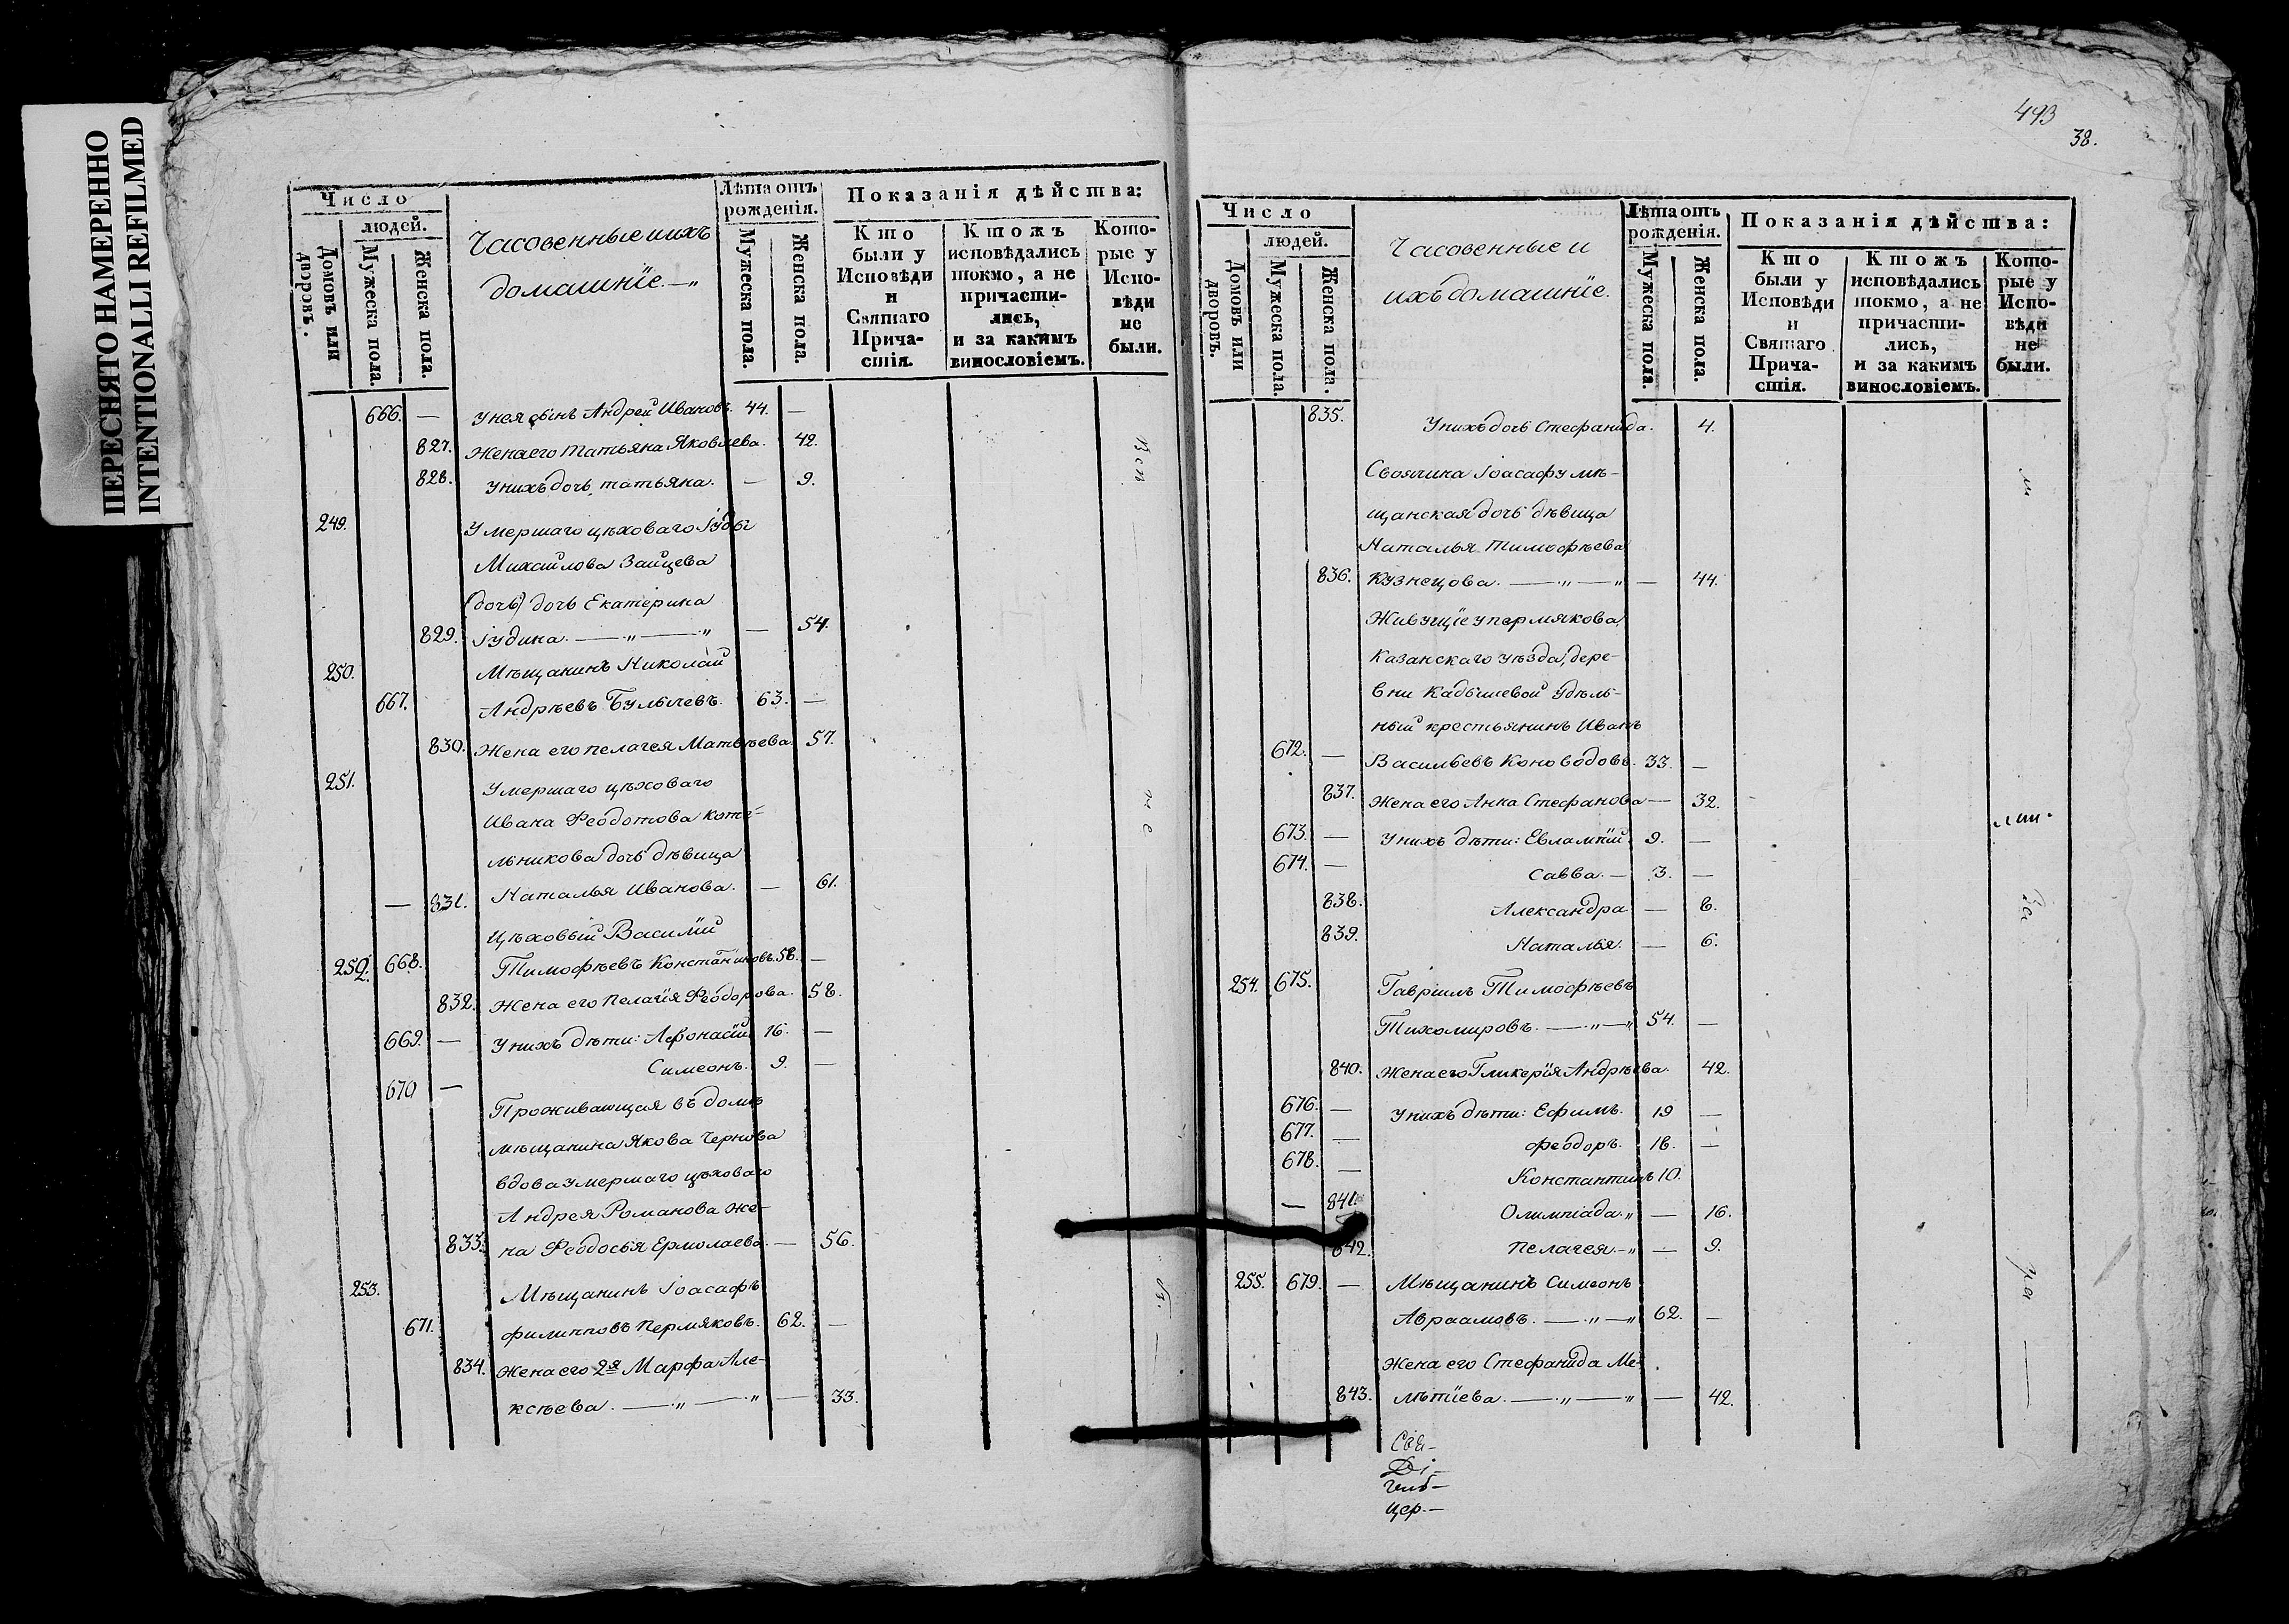 ПЕРЕСНЯТО НАМЕРЕННО
INTENTIONALLI REFILMED
Число
людей.
Домовъ или дворовъ.
Мужеска пола.
Женска пола.
Часовенные и ихъ
домашніе. — „
Лѣта отъ
рожденія.
Мужеска пола.
Женска пола.
Показанія дѣйства:
Кто
были у
Исповѣди
и
Святаго
Прича-
стія.
Ктожъ
исповѣдались
токмо, а не
причасти-
лись,
и за какимъ
винословіемъ.
Кото-
рые у
Испо-
вѣди
не
были.
666. — У нея сынъ Андрей Ивановъ. 44. —
827. Жена его Татьяна Яковлева. 42.
828. У нихъ дочь татьяна. — 9.
249. Умершаго цѣховаго Іуды
Михайлова Зайцева
(дочь) дочь Екатерина
829. Іудина. — „ — „ — 54.
250. Мѣщанинъ Николай
667. Андрѣевъ Булычевъ. 63. —
830. Жена его пелагея Матвѣева. 57.
251. Умершаго цѣховаго
Ивана Феодотова Коте-
льникова дочь дѣвица
— 831. Наталья Иванова. — 61.
Цѣховый Василій
252. 668. Тимофѣевъ Констаниновъ. 58. —
832. Жена его Пелагія Феодорова. 58.
669. — У нихъ дѣти: Афонасій 16. —
Симеонъ. 9. —
670 —
Проживающая въ домѣ
мѣщанина Якова Чернова
вдова умершаго цѣховаго
Андрея Романова же-
833. на Феодосья Ермолаева. — 56.
253. Мѣщанинъ Іоасафъ
671. филипповъ Пермяковъ. 62. —
834. Жена его 2я Марфа Але-
ксѣева. — „ — „ — 33.
Всѣ
не
бы.
493
38.
Число
людей.
Домовъ или дворовъ.
Мужеска пола.
Женска пола.
Часовенные и
ихъ домашніе.
Лѣта отъ
рожденія.
Мужеска пола.
Женска пола.
Показанія дѣйства:
Кто
были у
Исповѣди
и
Святаго
Прича-
стія.
Ктожъ
исповѣдались
токмо, а не
причасти-
лись,
и за какимъ
винословіемъ.
Кото-
рые у
Испо-
вѣди
не
были.
835. У нихъ дочь Стефанида. 4.
Своячина Іоасафу мѣ-
щанская дочь дѣвица
Наталья Тимофѣева
836. Кузнецова. — „ — „ — 44.
Живущіе у пермякова,
Казанскаго уѣзда, дере-
вни Кадышевой удѣль-
ный крестьянинъ Иванъ
672. — Васильевъ Коноводовъ. 33. —
837. Жена его Анна Стефанова — 32.
673. — У нихъ дѣти: Евлампій. 9. —
674. — Савва. — 3. —
838. Александра — 8.
839. Наталья. — 6.
254. 675. Гавріилъ Тимофѣевъ
Тихомировъ. — „ — „ 54. —
840. Жена его Гликерія Андрѣева. 42.
676. — У нихъ дѣти: Ефимъ. 19 —
677. — Феодоръ. 18. —
678. — Константинъ 10.
— 841. Олимпіада. „ — 16.
842. Пелагея. — „ — 9.
255. 679. — Мѣщанинъ Симеонъ
Авраамовъ. — „ — „ 62. —
Жена его Стефанида Ме-
843. лѣтіева. — „ — „ — 42.
ли.
За
ра
Свя-
Ді-
Цер.-